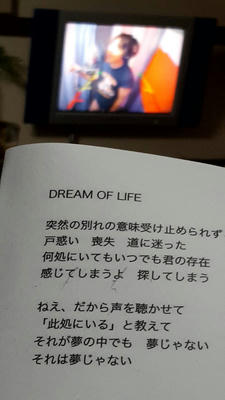 DREAM OF LIFE
突然の別れの意味受け止められず
戸惑い 喪失 道に迷った
何処にいてもいつでも君の存在
感じてしまうよ 探してしまう
ねえ、だから声を聴かせて
「此処にいる」と教えて
それが夢の中でも 夢じゃない
それは夢じゃない